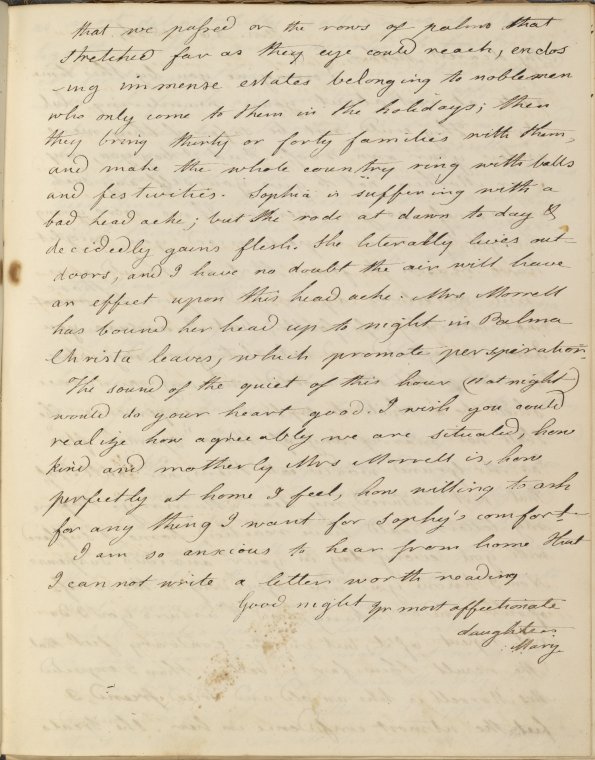 that we passed or the rows of palms that
stretched far as they eye could reach, enclos
-ing immense estates belonging to noblemen
who only come to them in the holidays; then
they bring thirty or forty families with them,
and make the whole country ring with balls
and festivities. Sophia is suffering with a
bad head ache; but the rode at dawn to day &
decidedly gains flesh. She literally lives out-
doors, and I have no doubt the air will have
an effect upon this head ache. Mrs Morrell
has bound her head up to night in Palma
Christa leaves, which promote perspiration.
The sound of the quiet of this hour (11 at night)
would do your heart good. I wish you could
realize how agreeably we are situated, how
kind and motherly Mrs Morrell is, how
perfectly at home I feel, how willing to ask
for any thing I want for Sophy's comfort
I am so anxious to hear from home that
I can not write a letter worth reading
Good night yr most affectionate
daughter
Mary